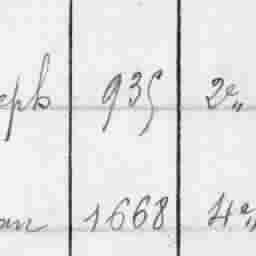 eph 935 2e„
an 1668 4e„